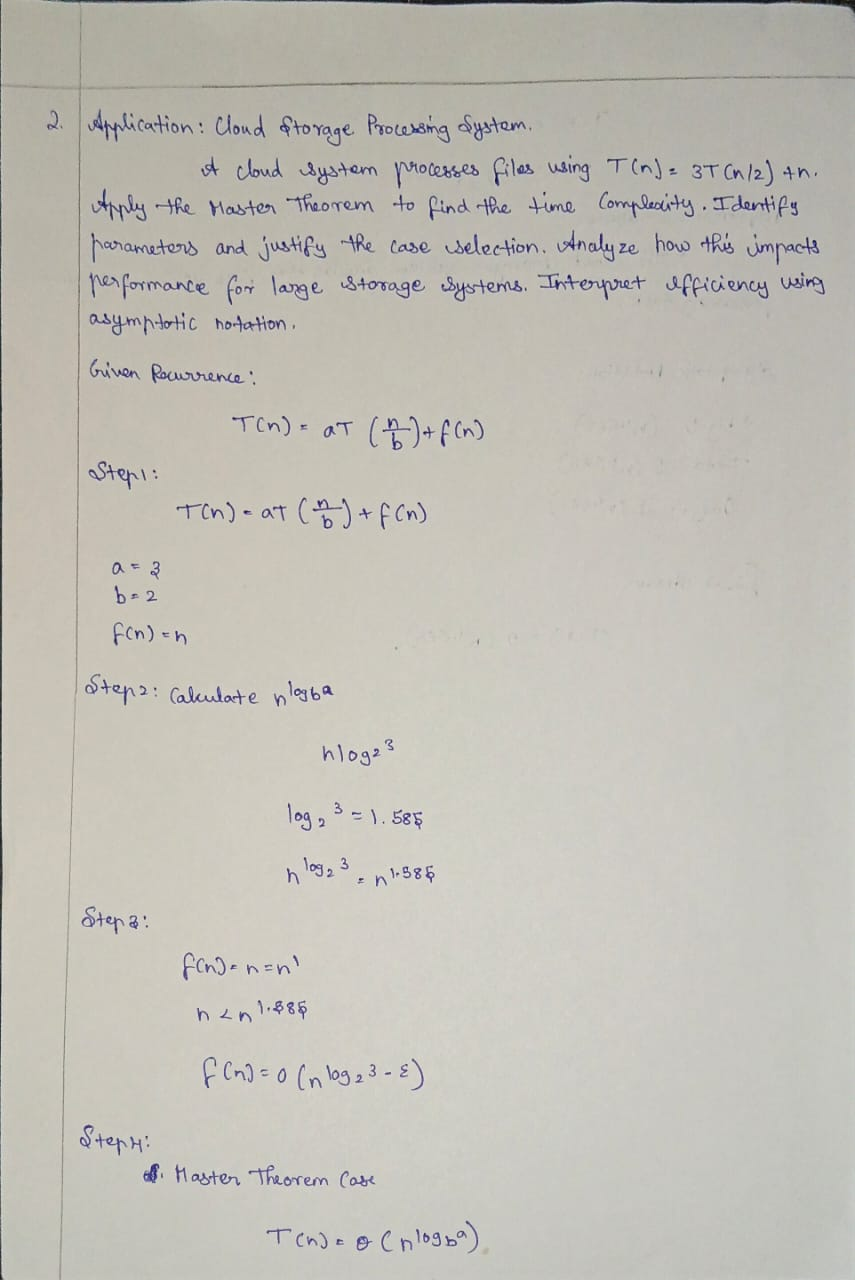 2. Application: Cloud Storage Processing System.
A cloud system processes files using T(n) = 3T(n/2) + n.
Apply the Master Theorem to find the time Complexity. Identify
parameters and justify the case selection. Analyze how this impacts
performance for large storage systems. Interpret efficiency using
asymptotic notation.
Given Recurrence:
T(n) = aT (n/b) + f(n)
Step 1:
T(n) = aT (n/b) + f(n)
a = 3
b = 2
f(n) = n
Step 2: Calculate n^log_b a
n log_2 3
log_2 3 = 1.585
n^log_2 3 = n^1.585
Step 3:
f(n) = n = n^1
n < n^1.585
f(n) = O(n^log_2 3 - ε)
Step 4:
Master Theorem Case
T(n) = Θ(n^log_b a)